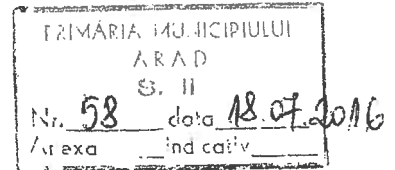 PRIMĂRIA MUNICIPIULUI
ARAD
S. II
Nr. 58 data 18.07.2016
Anexa __ Indicativ ____